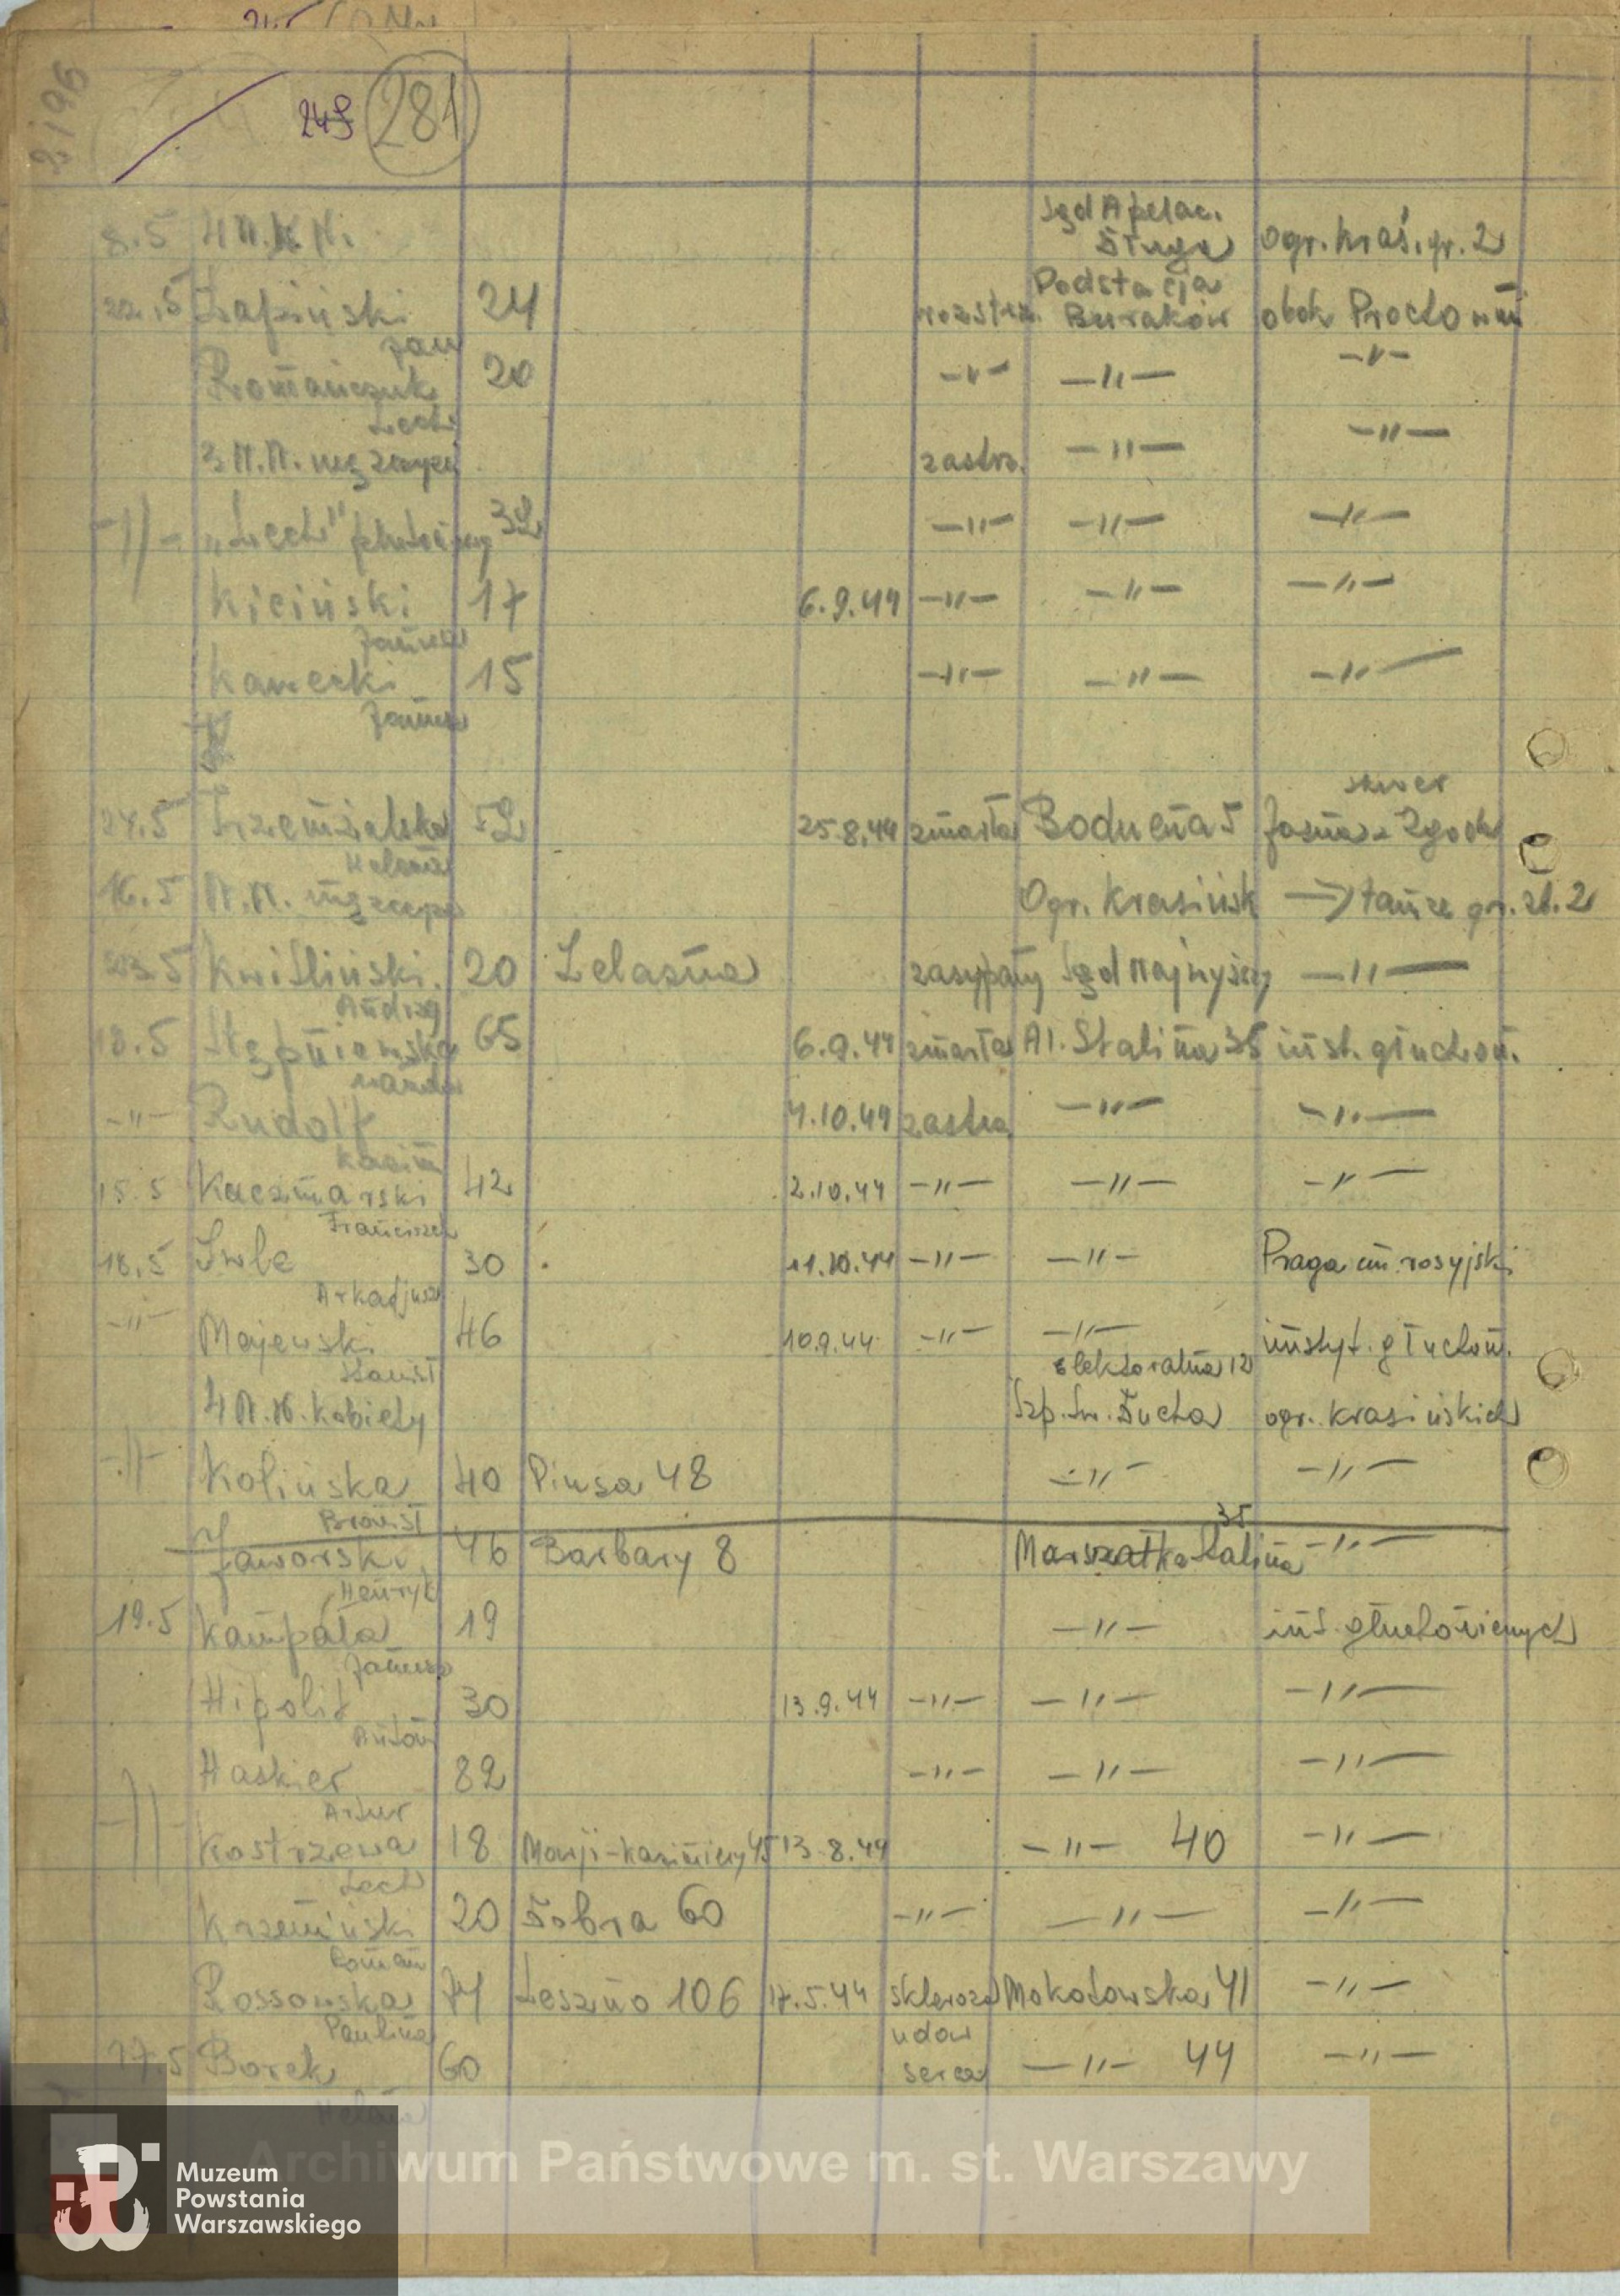 2196
249 281
8.5 4 N.N. Sąd Apelac. Długa Ogr. Kraś. gr. 2
22.5 Łapiński Jan 24 rozstrz. Podstacja Buraków obok Prochowni
Romańczuk Lech 20 -"- -"- -"-
3 N.N. mężczyzn zastrz. -"- -"-
-"- "Lech" plutonowy 32 -"- -"- -"-
Kiciński Janusz 17 6.9.44 -"- -"- -"-
Kanecki Janusz 15 -"- -"- -"-
24.5 Trzemżalska Helena 52 25.8.44 zmarła Boduena 5 skwer Jasna-Zgoda
16.5 N.N. mężczyzn Ogr. Krasińsk → tamże gr. zb. 2
23.5 Kwitliński Andrzej 20 Żelazna zasypany Sąd Najwyższy -"-
18.5 Stępniewska Wanda 65 6.9.44 zmarła Al. Stalina 35 inst. głuchon.
-"- Rudolf Kazim 4.10.44 zastrz. -"- -"-
15.5 Kaczmarski Franciszek 42 2.10.44 -"- -"- -"-
18.5 Iwle Arkadjusz 30 11.10.44 -"- -"- Praga cm. rosyjski
-"- Majewski Stanisł 46 10.9.44 -"- -"- instyt. głuchon.
4 N.N. kobiety Elektoralna 12 Szp. Św. Ducha ogr. Krasińskich
-"- Kolińska Bronisł 40 Piusa 48 -"- -"-
Jaworski Henryk 46 Barbary 8 Marszałka Stalina 35 -"-
19.5 Kampata Janusz 19 -"- inst. głuchoniemych
Hipolit Antoni 30 13.9.44 -"- -"- -"-
Haskier Artur 82 -"- -"- -"-
-"- Kostrzewa Lech 18 Marji-Kazimiery 45 13.8.44 -"- 40 -"-
Krzemiński Roman 20 Dobra 60 -"- -"- -"-
Rossowska Paulina 74 Leszno 106 17.5.44 skleroza Mokotowska 41 -"-
17.5 Borek Helena 60 udar serca -"- 44 -"-
Archiwum Państwowe m. st. Warszawy
Muzeum
Powstania
Warszawskiego